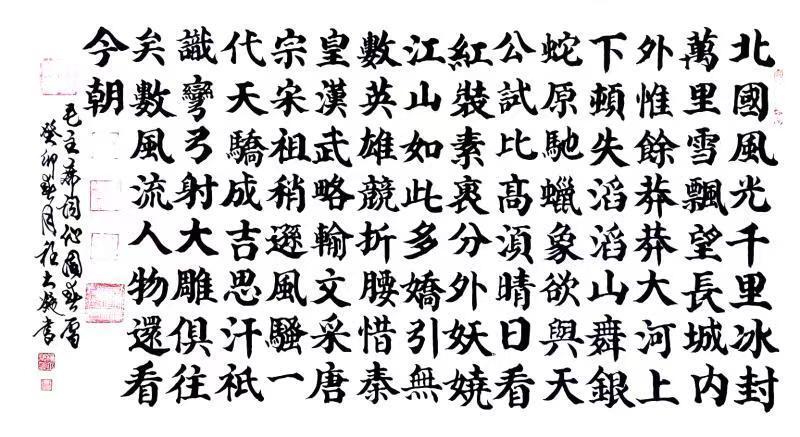 北國風光千里冰封
萬里雪飄望長城内
外惟餘莽莽大河上
下頓失滔滔山舞銀
蛇原馳蠟象欲與天
公試比高須晴日看
紅裝素裹分外妖嬈
江山如此多嬌引無
數英雄競折腰惜秦
皇漢武略輸文采唐
宗宋祖稍遜風騷一
代天驕成吉思汗祇
識彎弓射大雕俱往
矣數風流人物還看
今朝
毛主席詞沁園春雪
癸卯春月書